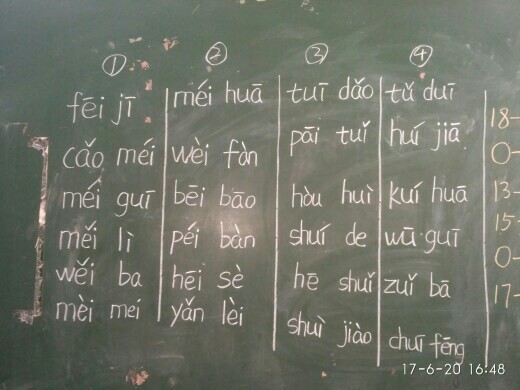 ①
fēi jī
cǎo méi
méi guī
měi lì
wěi ba
mèi mei
②
méi huā
wèi fàn
bēi bāo
péi bàn
hēi sè
yǎn lèi
③
tuī dǎo
pāi tuǐ
hòu huì
shuí de
hē shuǐ
shuì jiào
④
tǔ duī
huí jiā
kuí huā
wū guī
zuǐ bā
chuī fēng
18-
0-
13-
15-
0-
17-
17-6-20 16:48